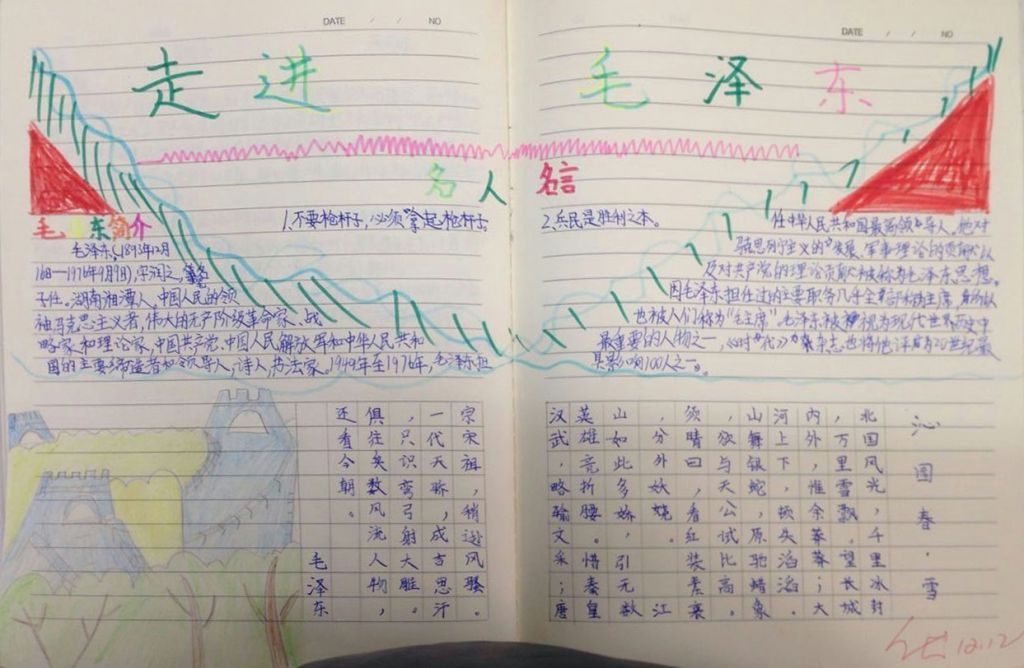 DATE / / NO
DATE / / NO
走进 毛泽东
名人名言
1.不要枪杆子,必须拿起枪杆子
2.兵民是胜利之本。
毛泽东简介
毛泽东,1893年12月
—1976年9月9日),字润之,笔名
子任。湖南湘潭人,中国人民的领
袖马克思主义者,伟大的无产阶级革命家、战
略家和理论家,中国共产党、中国人民解放军和中华人民共和
国的主要缔造者和领导人,诗人,书法家。1949年至1976年,毛泽东担
任中华人民共和国最高领导人。他对
马克思列宁主义的发展、军事理论的贡献以
及对共产党的理论贡献被称为毛泽东思想。
因毛泽东担任过的主要职务几乎全部称为主席,所以
也被人们称为"毛主席"。毛泽东被视为现代世界历史中
最重要的人物之一,《时代》杂志也将他评为20世纪最
具影响100人之一。
沁园春·雪
北国风光，千里冰封
，万里雪飘。望长城
内外，惟余莽莽；大
河上下，顿失滔滔。
山舞银蛇，原驰蜡象
，欲与天公试比高。
须晴曰，看红装素裹
，分外妖娆。江
山如此多娇，引无数
英雄竞折腰。惜秦皇
汉武，略输文采；唐
宗宋祖，稍逊风骚。
一代天骄，成吉思汗
，只识弯弓射大雕。
俱往矣，数风流人物，
还看今朝。
毛泽东
12.12